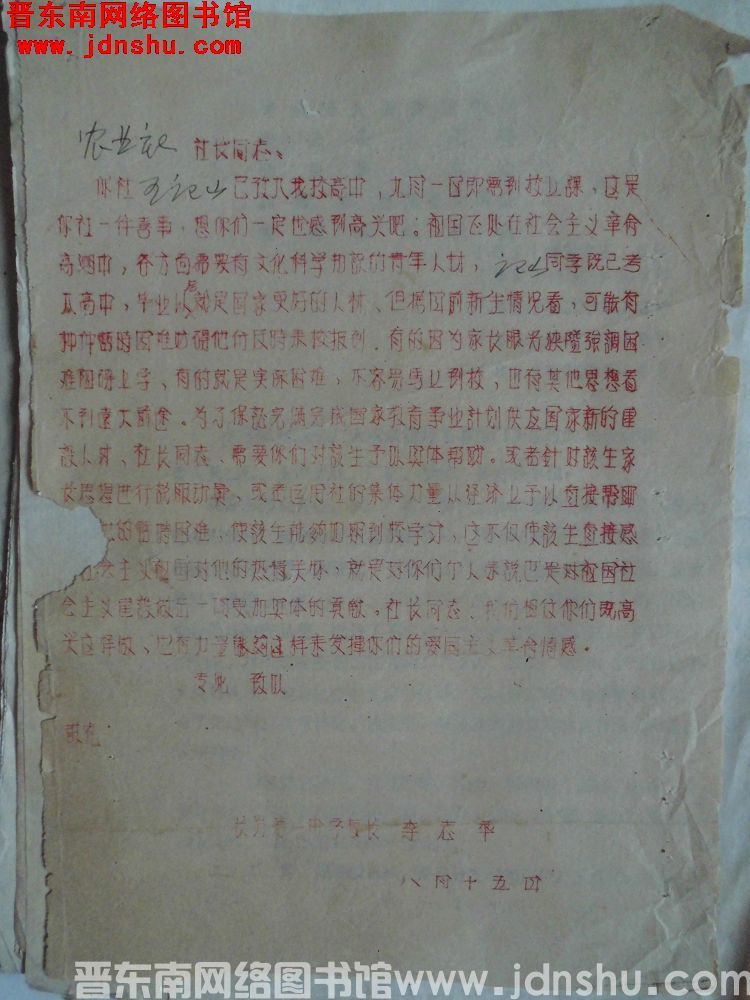 晋东南网络图书馆
www.jdnshu.com
农业社 社长同志、
你社 王记山 已考入我校高中，九月一日即需到校上课，这是
你社一件喜事，想你们一定也感到高兴吧：祖国正处在社会主义革命
高潮中，各方面需要有文化科学知识的青年人材， 记山 同学既已考
入高中，毕业以后就是国家更好的人材、但据目前新生情况看，可能有
种种暂时困难妨碍他们及时来校报到、有的因为家长眼光狭隘强调困
难阻碍上学、有的就是实际困难，不容易马上到校，也有其他思想看
不到远大前途。为了保証完满完成国家教育事业計划供应国家新的建
設人材、社长同志、需要你们对該生予以具体帮助。或者針对該生家
长思想进行說服动員，或者运用社的集体力量从经济上予以直接帮助
的暂时困难，使該生能够如期到校学习，这不仅使該生直接感
会主义祖国对他的热情关怀，就是对你们个人来說也是对祖国社
会主义建設做出一项更加具体的貢献。社长同志：我们相信你们既高
兴这样做、也有力量能够这样来发揮你们的爱国主义革命情感。
专此 致以
敬礼
长治第一中学校长 李志华
八月十五日
晋东南网络图书馆www.jdnshu.com